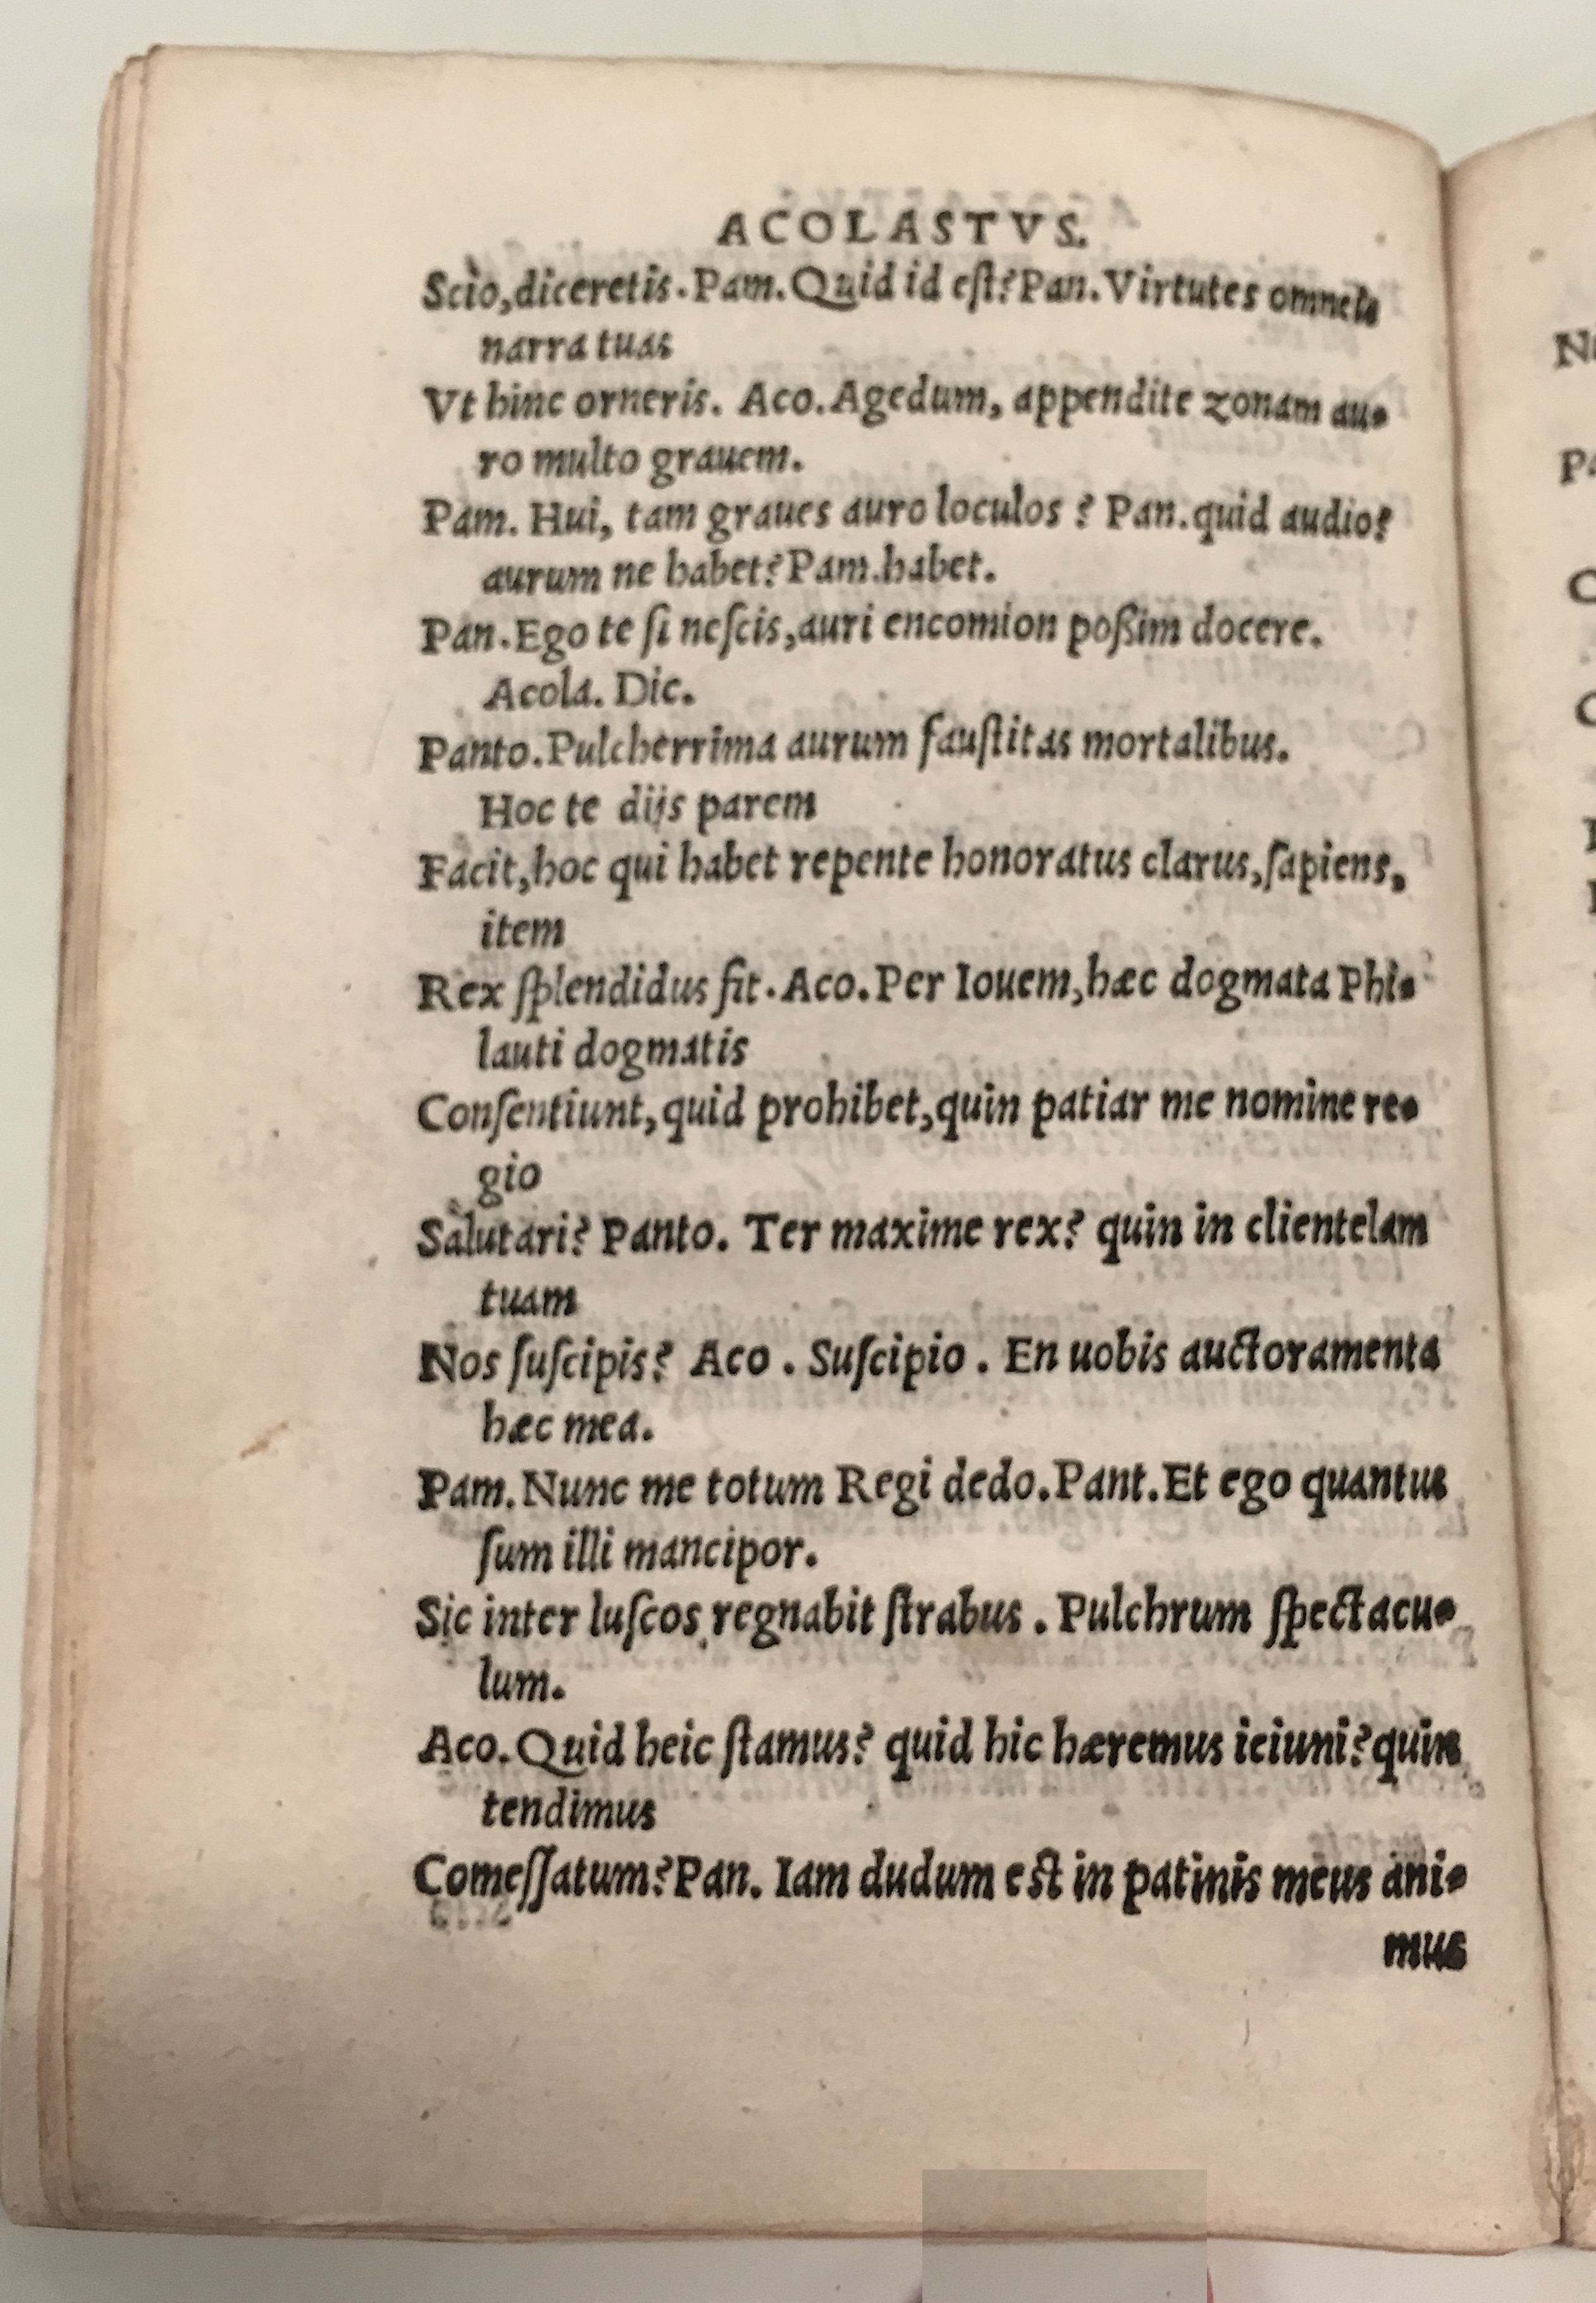 ACOLASTVS.
Scio,diceretis.Pam.Quid id eſt?Pan.Virtutes omneis
narra tuas
Vt hinc orneris. Aco.Agedum, appendite zonam au-
ro multo grauem.
Pam. Hui, tam graues auro loculos ? Pan.quid audio?
aurum ne habet?Pam.habet.
Pan.Ego te ſi neſcis,auri encomion poßim docere.
Acola. Dic.
Panto.Pulcherrima aurum fauſtitas mortalibus.
Hoc te dijs parem
Facit,hoc qui habet repente honoratus clarus,ſapiens,
item
Rex ſplendidus fit.Aco.Per Iouem,hæc dogmata Phi-
lauti dogmatis
Conſentiunt,quid prohibet,quin patiar me nomine re-
gio
Salutari? Panto. Ter maxime rex? quin in clientelam
tuam
Nos ſuſcipis? Aco . Suſcipio . En uobis auctoramenta
hæc mea.
Pam.Nunc me totum Regi dedo.Pant.Et ego quantus
ſum illi mancipor.
Sic inter luſcos regnabit ſtrabus . Pulchrum ſpectacu-
lum.
Aco.Quid heic ſtamus? quid hic hæremus ieiuni?quin
tendimus
Comeſſatum?Pan. Iam dudum eſt in patinis meus ani-
mus
N
Pa
C
C